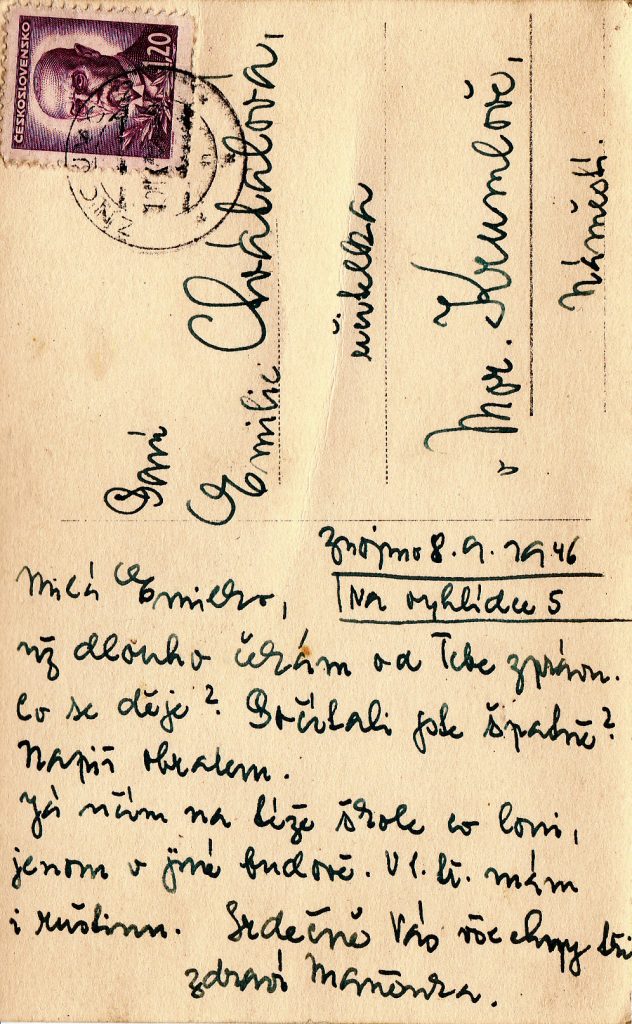 ČESKOSLOVENSKO
1.20
Paní
Emilie Chvátalová,
učitelka
v Mor. Krumlově,
Náměstí.
Znojmo 8. 9. 1946
Na vyhlídce 5
Milá Emilko,
už dlouho čekám od Tebe zprávu.
Co se děje? Počítali jste špatně?
Napiš obratem.
Já učím na téže škole co loni,
jenom v jiné budově. V 1. tř. mám
i ruštinu. Srdečně Vás všechny tři
zdraví Mařenka.